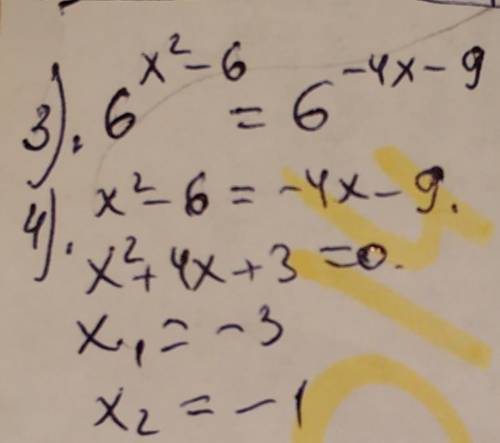 3). 6^{x²-6} = 6^{-4x-9}
4). x²-6 = -4x-9.
x²+4x+3 = 0.
x₁ = -3
x₂ = -1